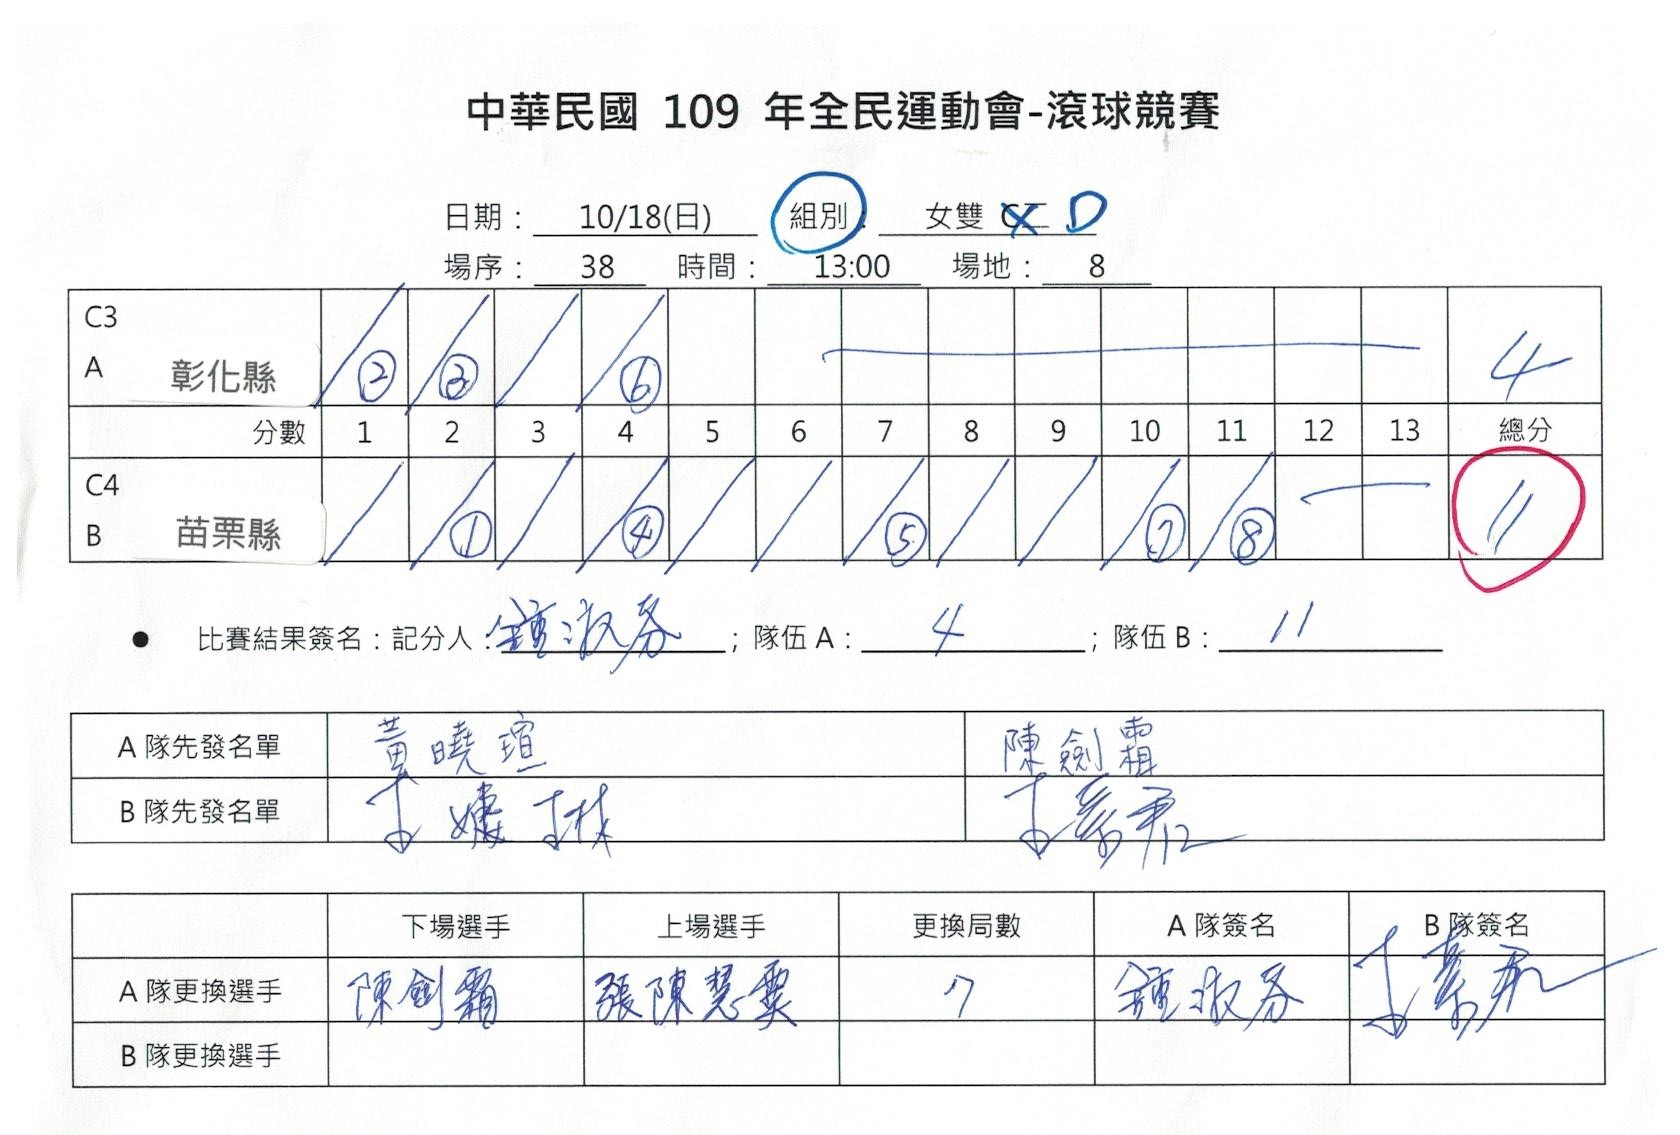 中華民國 109 年全民運動會-滾球競賽
日期： 10/18(日) 組別： 女雙 C D
場序： 38 時間： 13:00 場地： 8
C3
A 彰化縣 ② ③ ⑥ 4
分數 1 2 3 4 5 6 7 8 9 10 11 12 13 總分
C4
B 苗栗縣 ① ④ ⑤ ⑦ ⑧ 11
● 比賽結果簽名：記分人：鍾淑芬；隊伍 A： 4 ；隊伍 B： 11
A 隊先發名單 黃曉瑄 陳劍霜
B 隊先發名單
下場選手 上場選手 更換局數 A 隊簽名 B 隊簽名
A 隊更換選手 陳劍霜 張陳慧 7 鍾淑芬
B 隊更換選手